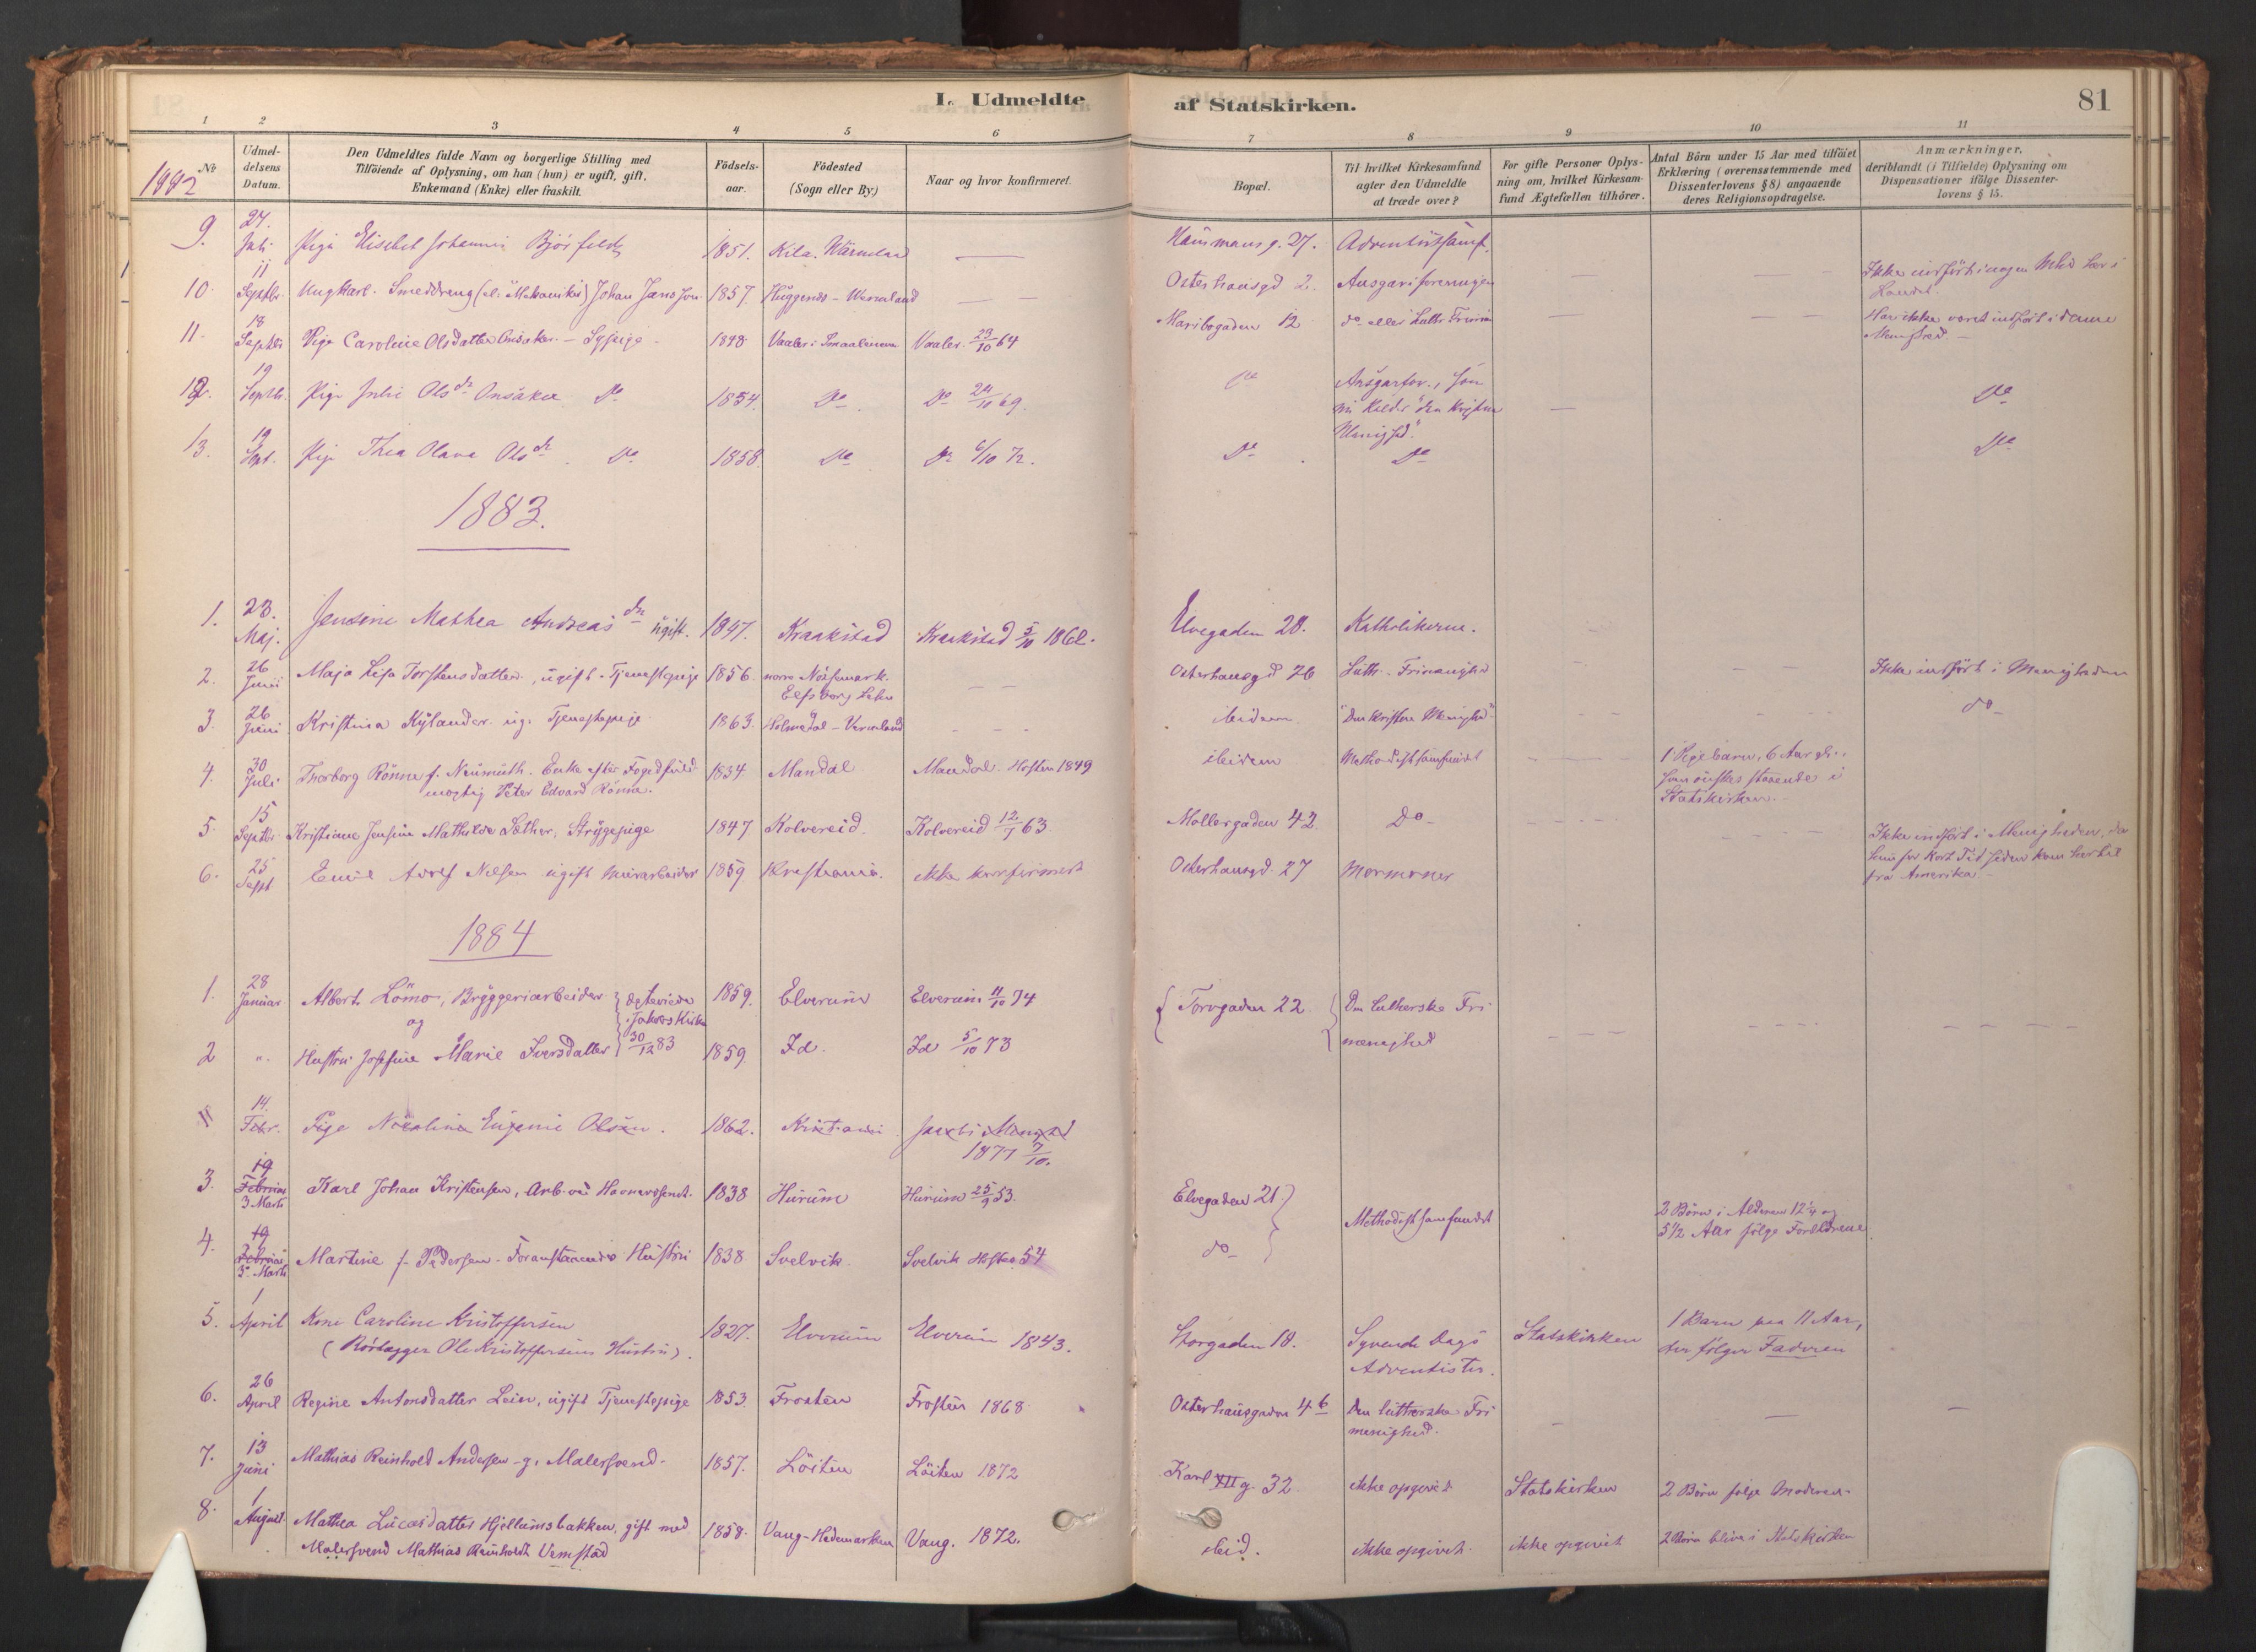 I. Udmeldte af Statskirken. 81
1 2 3 4 5 6 7 8 9 10 11
No
1882
Udmel-
delsens
Datum.
Den Udmeldtes fulde Navn og borgerlige Stilling med
Tilföiende af Oplysning, om han (hun) er ugift, gift,
Enkemand (Enke) eller fraskilt.
Födsels-
aar.
Födested
(Sogn eller By.)
Naar og hvor konfirmeret.
Bopæl.
Til hvilket Kirkesamfund
agter den Udmeldte
at træde over?
For gifte Personer Oplys-
ning om, hvilket Kirkesam-
fund Ægtefællen tilhörer.
Antal Börn under 15 Aar med tilföiet
Erklæring (overensstemmende med
Dissenterlovens § 8) angaaende
deres Religionsopdragelse.
Anmærkninger,
deriblandt (i Tilfælde) Oplysning om
Dispensationer ifölge Dissenter-
lovens § 15.
9. 27. Juli Pige Elisebet Johannis 1851. Kila. Wärmland — Hausmansg. 27. Adventistsamf.
10. 11 Septbr. Ungkarl. Smeddreng (el. Mekaniker) Johan Jansson 1857. Huggenäs - Wermland — — Osterhausgd 2. Ansgariforeningen — — — Ikke indført i nogen Mhd her i
Landet.
11. 18 Septbr Pige Caroline Olsdatter Onsaker - Sypige - 1848 Vaaler i Smaalenene Vaaler 23/10 64 Maribogaden 12 do eller Luth. Frim — — Har ikke været indført i denne
Menighed. —
12. 19 Septbr. Pige Julie Olsdr Onsaker Do 1854. Do Do 24/10 69. Do Ansgarfor., som
kalder "den kristne
Menighed." — Do
13. 19 Sept. Pige Thea Olava Olsdr Do 1858. Do Do 6/10 72. Do Do Do
1883.
1. 23. Maj. Jensine Mathea Andreasdr ugift. 1847. Kraakstad Kraakstad 5/10 1862. Elvegaden 20. Katholikerne.
2. 26 Juni Maja Lisa Torstensdatter, ugift - Tjenestepige 1856. norra
Elfsborg Lehn — — Osterhausgd 26 Luth. Frimenighed — — — Ikke indført i Menigheden
3. 26 Juni Kristina Kylander ug. Tjenestepige 1863. Holmedal - Vermland — — — ibidem. "Den kristne Menighed" — — — — do
4. 30 Juli Thorborg Rönne f. Neumuth. Enke efter Fogedfuld-
mægtig Peter Edvard Rönne. 1834 Mandal Mandal. Hösten 1849 ibidem Methodistsamfundet — — — 1 Pigebarn, 6 Aar gl.,
som ønskes staaende i
Statskirken. —
5. 15 Septbr. Kristiane Jensine Mathilde Sæther, Strygepige 1847 Kolvereid. Kolvereid 12/7 63 Møllergaden 42. Do — — — — — — Ikke indført i Menigheden, da
hun for kort Tid siden kom hertil
fra Amerika. —
6. 25 Sept Emil Adolf Nilsen ugift Murarbeider 1859 Kristiania. ikke konfirmert Osterhausgd 27 Mormoner
1884
1. 28 Januar Albert Lömo, Bryggeriarbeider
og
1859. Elverum Elverum 11/10 74 Torvgaden 22. Den lutherske Fri
menighed — — — — — — — — — —
2 " Hustru Josefine Marie Iversdatter 1859. Id. Id 5/10 73
ægteviede
i Jakobs Kirke
30/12 83
14. Febr. Pige Nicoline Eugenie Olsen. 1862. Kristiania Jacobs Menighed
1877 7/10.
3. 19 Februar
3 Marts Karl Johan Kristensen, Arb. 1838 Hurum Hurum 25/9 53. Elvegaden 21 Methodistsamfundet 2 Børn i Alderen 12 1/4 og
5 1/2 Aar følge Forældrene
4. 19 Februar
3. Marts Martine f. Pedersen - Foranstaaendes Hustru 1838 Svelvik. Svelvik Høsten 54 do
5. 1 April Kone Caroline Kristoffersen
(Rörlægger Ole Kristoffersens Hustru). 1827. Elverum Elverum 1843. Storgaden 10. Syvende Dags
Adventister. Statskirken 1 Barn paa 11 Aar,
der følger Faderen
6. 26 April Regine Antonsdatter Leier, ugift Tjenestepige 1853. Frosten Frosten 1868 Osterhausgaden 4 b Den lutherske Fri
menighed. — — —
7. 13 Juni Mathias Reinhold Andersen - g. Malersvend - 1857. Löiten Löiten 1872 Karl XII g. 32 ikke opgivet Statskirken 2 Børn følge Moderen -
8. 1 August. Mathea Lucasdatter Hjellumsbakken, gift med
Malersvend Mathias Reinholdt Vemstad 1858. Vang - Hedemarken Vang. 1872. ibid. ikke opgivet. ikke opgivet 2 Børn blive i Statskirken